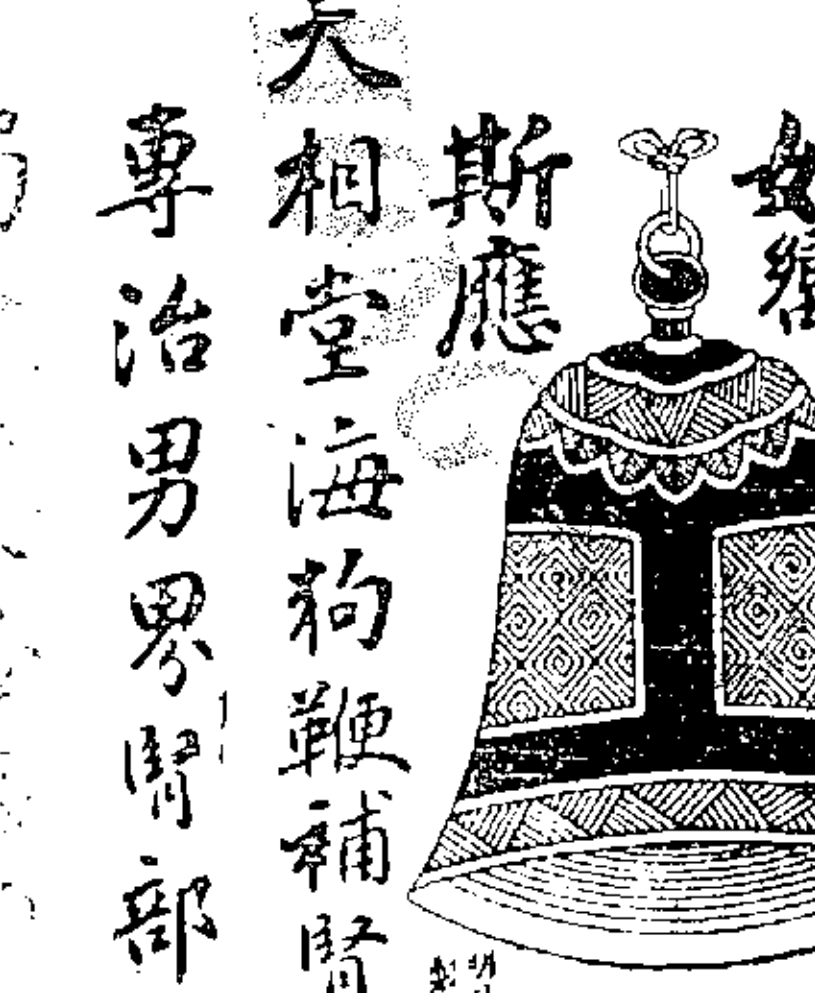 斯應
天相堂海狗鞭補腎
專治男界腎部